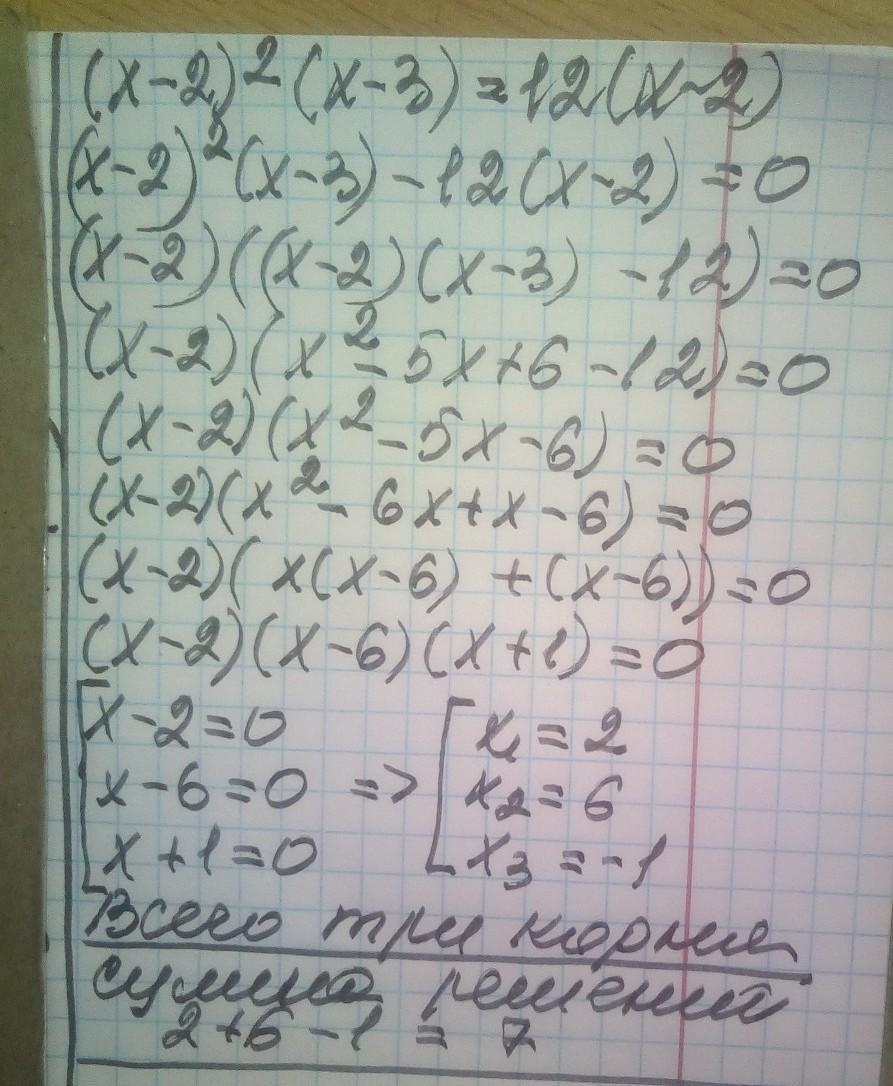 (x-2)²(x-3)=12(x-2)
(x-2)²(x-3)-12(x-2)=0
(x-2)((x-2)(x-3) -12)=0
(x-2)(x²-5x+6-12)=0
(x-2)(x²-5x-6)=0
(x-2)(x²-6x+x-6)=0
(x-2)(x(x-6) +(x-6))=0
(x-2)(x-6)(x+1)=0
[x-2=0 [x₁=2
x-6=0 => x₂=6
x+1=0 x₃=-1
Всего три корня
сумма решений
2+6-1 = 7